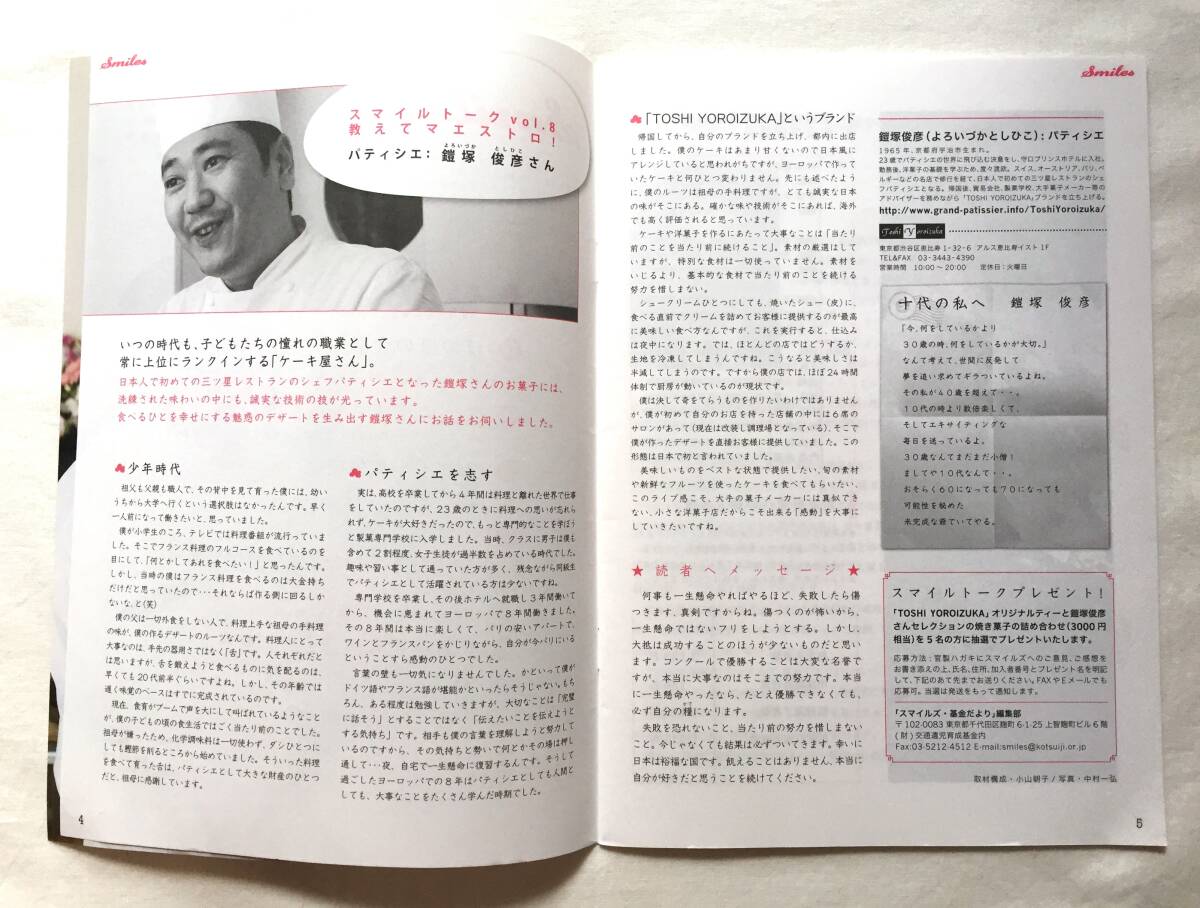 Smiles
スマイルトーク vol.8
教えてマエストロ!
パティシエ: 鎧塚 俊彦さん
よろいづか としひこ
いつの時代も、子どもたちの憧れの職業として
常に上位にランクインする「ケーキ屋さん」。
日本人で初めての三ツ星レストランのシェフパティシエとなった鎧塚さんのお菓子には、
洗練された味わいの中にも、誠実な技術の技が光っています。
食べるひとを幸せにする魅惑のデザートを生み出す鎧塚さんにお話をお伺いしました。
少年時代
祖父も父親も職人で、その背中を見て育った僕には、幼い
うちから大学へ行くという選択肢はなかったんです。早く
一人前になって働きたいと、思っていました。
僕が小学生のころ、テレビでは料理番組が流行っていまし
た。そこでフランス料理のフルコースを食べているのを
目にして、「何とかしてあれを食べたい!」と思ったんです。
しかし、当時の僕はフランス料理を食べるのは大金持ち
だけだと思っていたので・・・それならば作る側に回るしか
ないな、と(笑)
僕の父は一切外食をしない人で、料理上手な祖母の手料理
の味が、僕の作るデザートのルーツなんです。料理人にとって
大事なのは、手先の器用さではなく「舌」です。人それぞれだと
は思いますが、舌を鍛えようと食べるものに気を配るのは、
早くても20代前半ぐらいですよね。しかし、その年齢では
遅く味覚のベースはすでに完成されているのです。
現在、食育がブームで声を大にして叫ばれているようなこと
が、僕の子どもの頃の食生活ではごく当たり前のことでした。
祖母が嫌ったため、化学調味料は一切使わず、ダシひとつに
しても鰹節を削るところから始めていました。そういった料理
を食べて育った舌は、パティシエとして大きな財産のひとつ
だと、祖母に感謝しています。
パティシエを志す
実は、高校を卒業してから4年間は料理と離れた世界で仕事
をしていたのですが、23歳のときに料理への思いが忘れら
れず、ケーキが大好きだったので、もっと専門的なことを学ぼう
と製菓専門学校に入学しました。当時、クラスに男子は僕も
含めて2割程度、女子生徒が過半数を占めている時代でした。
趣味や習い事として通っていた方が多く、残念ながら同級生
でパティシエとして活躍されている方は少ないですね。
専門学校を卒業し、その後ホテルへ就職し3年間働いて
から、機会に恵まれてヨーロッパで8年間働きました。
その8年間は本当に楽しくて、パリの安いアパートで、
ワインとフランスパンをかじりながら、自分が今パリにいる
ということすら感動のひとつでした。
言葉の壁も一切気になりませんでした。かといって僕が
ドイツ語やフランス語が堪能かといったらそうじゃない。もち
ろん、ある程度は勉強していきますが、大切なことは「完璧
に話そう」とすることではなく「伝えたいことを伝えようと
する気持ち」です。相手も僕の言葉を理解しようと努力して
いるのですから、その気持ちと勢いで何とかその場は押し
通して・・・夜、自宅で一生懸命に復習するんです。そうして
過ごしたヨーロッパでの8年はパティシエとしても人間と
しても、大事なことをたくさん学んだ時期でした。
4
Smiles
「TOSHI YOROIZUKA」というブランド
帰国してから、自分のブランドを立ち上げ、都内に出店
しました。僕のケーキはあまり甘くないので日本風に
アレンジしていると思われがちですが、ヨーロッパで作って
いたケーキと何ひとつ変わりません。先にも述べたよう
に、僕のルーツは祖母の手料理ですが、とても誠実な日本
の味がそこにある。確かな味や技術がそこにあれば、海外
でも高く評価されると思っています。
ケーキや洋菓子を作るにあたって大事なことは「当たり
前のことを当たり前に続けること」。素材の厳選はして
いますが、特別な食材は一切使っていません。素材を
いじるより、基本的な食材で当たり前のことを続ける
努力を惜しまない。
シュークリームひとつにしても、焼いたシュー(皮)に、
食べる直前でクリームを詰めてお客様に提供するのが最高
に美味しい食べ方なんですが、これを実行すると、仕込み
は夜中になります。では、ほとんどの店ではどうするか、
生地を冷凍してしまうんですね。こうなると美味しさは
半減してしまうのです。ですから僕の店では、ほぼ24時間
体制で厨房が動いているのが現状です。
僕は決して奇をてらうものを作りたいわけではありません
が、僕が初めて自分のお店を持った店舗の中には6席の
サロンがあって(現在は改装し調理場となっている)、そこで
僕が作ったデザートを直接お客様に提供していました。この
形態は日本で初と言われていました。
美味しいものをベストな状態で提供したい、旬の素材
や新鮮なフルーツを使ったケーキを食べてもらいたい、
このライブ感こそ、大手の菓子メーカーには真似でき
ない、小さな洋菓子店だからこそ出来る「感動」を大事に
していきたいですね。
★ 読者へメッセージ ★
何事も一生懸命やればやるほど、失敗したら傷
つきます、真剣ですからね。傷つくのが怖いから、
一生懸命ではないフリをしようとする。しかし、
大抵は成功することのほうが少ないものだと思いま
す。コンクールで優勝することは大変な名誉で
すが、本当に大事なのはそこまでの努力です。本当
に一生懸命やったなら、たとえ優勝できなくても、
必ず自分の糧になります。
かて
失敗を恐れないこと、当たり前の努力を惜しまない
こと。今じゃなくても結果は必ずついてきます。幸いに
日本は裕福な国です。飢えることはありません、本当に
自分が好きだと思うことを続けてください。
鎧塚俊彦(よろいづかとしひこ): パティシエ
1965年、京都府宇治市生まれ。
23歳でパティシエの世界に飛び込む決意をし、守口プリンスホテルに入社。
勤務後、洋菓子の基礎を学ぶため、度々渡欧。スイス、オーストリア、パリ、ベ
ルギーなどの名店で修行を経て、日本人で初めての三ツ星レストランのシェ
フパティシエとなる。帰国後、貿易会社、製菓学校、大手菓子メーカー等の
アドバイザーを務めながら「TOSHI YOROIZUKA」ブランドを立ち上げる。
http://www.grand-patissier.info/ToshiYoroizuka/
Toshi Yoroizuka
東京都渋谷区恵比寿1-32-6 アルス恵比寿イスト1F
TEL&FAX 03-3443-4390
営業時間 10:00～20:00 定休日:火曜日
十代の私へ 鎧塚 俊彦
「今、何をしているかより
30歳の時、何をしているかが大切。」
なんて考えて、世間に反発して
夢を追い求めてギラついているよね。
その私が40歳を超えて・・・。
10代の時より数倍楽しくて、
そしてエキサイティングな
毎日を送っているよ。
30歳なんてまだまだ小僧!
ましてや10代なんて・・・。
おそらく60になっても70になっても
可能性を秘めた
未完成な爺でいてやる。
スマイルトークプレゼント!
「TOSHI YOROIZUKA」オリジナルティーと鎧塚俊彦
さんセレクションの焼き菓子の詰め合わせ(3000円
相当)を5名の方に抽選でプレゼントいたします。
応募方法:官製ハガキにスマイルズへのご意見、ご感想を
お書き添えの上、氏名、住所、加入者番号とプレゼント名を明記
して、下記のあて先までお送りください。FAXやEメールでも
応募可。当選は発送をもって通知します。
「スマイルズ・基金だより」編集部
〒102-0083 東京都千代田区麹町6-1-25 上智麹町ビル6階
(財)交通遺児育成基金内
Fax:03-5212-4512 E-mail:smiles@kotsuiji.or.jp
取材構成・小山朝子/写真・中村一弘
5